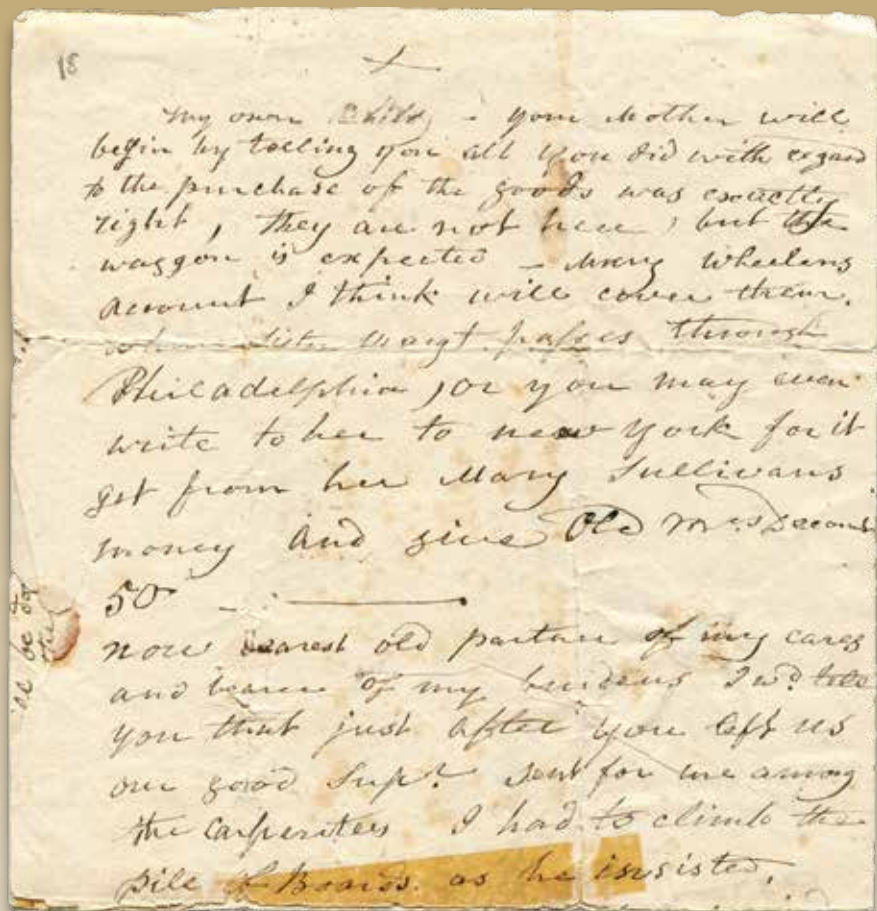 18
My own Child - your Mother will
begin by telling you all you did with regard
to the purchase of the goods was exactly
right, they are not here, but the
waggon is expected - Mary Wheelans
account I think will cover them.
when Sister Margt. passes through
Philadelphia, or you may even
write to her to new york for it
get from her Mary Sullivans
money and give Old Mrs
50
now dearest old partner of my cares
and bearer of my burdens I wd. tell
you that just after you left us
our good Supr. sent for me among
the carpenters I had to climb the
pile of Boards. as he insisted,